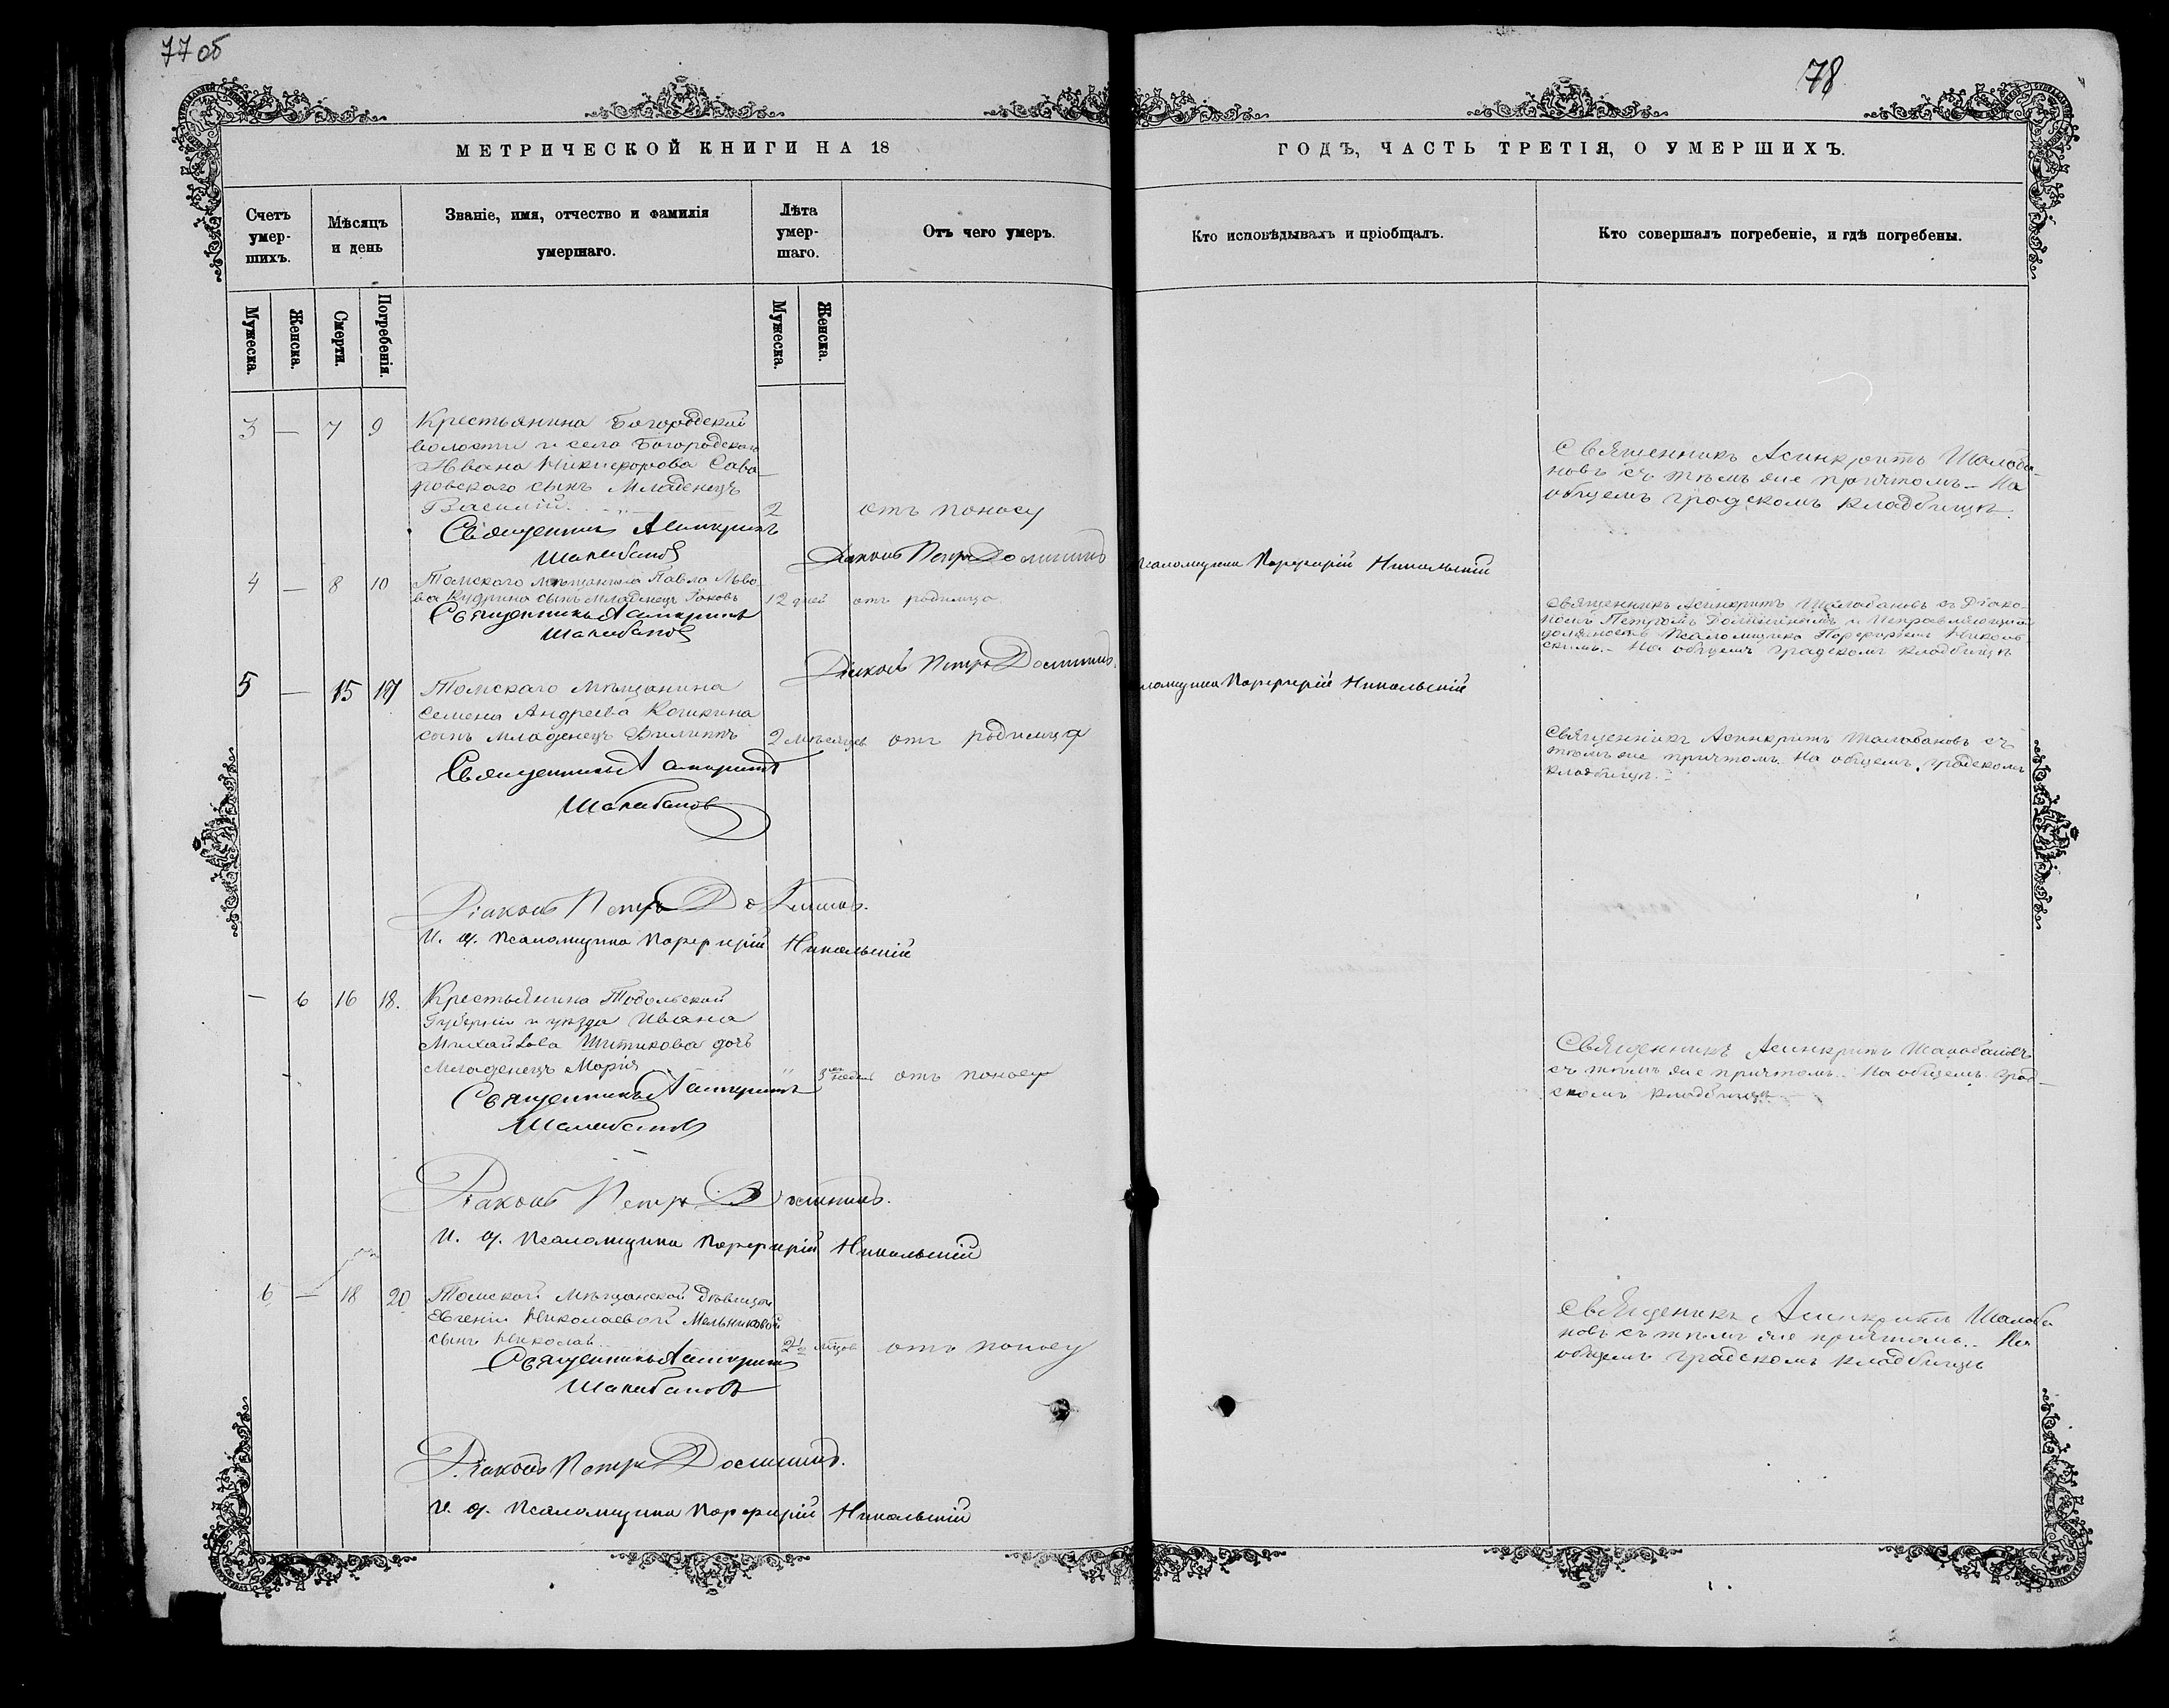 77 об
78
МЕТРИЧЕСКОЙ КНИГИ НА 18
ГОДЪ, ЧАСТЬ ТРЕТІЯ, О УМЕРШИХЪ.
Счетъ умер-
шихъ.
Мѣсяцъ
и день
Званіе, имя, отчество и фамилія
умершаго.
Лѣта
умер-
шаго.
Отъ чего умеръ.
Кто исповѣдывалъ и пріобщалъ.
Кто совершалъ погребеніе, и гдѣ погребены.
Мужеска.
Женска.
Смерти.
Погребенія.
Мужеска.
Женска.
3 — 7 9
Крестьянина Богородской
волости и села Богородскаго
Ивана Никифорова
сынъ Младенецъ
Василій
2
отъ поносу
Священникъ Асинкритъ Шалоба-
новъ съ тѣмъ же причтомъ – На
общемъ градскомъ кладбищѣ.
Священникъ Асинкритъ
Шалобановъ
Діаконъ Петръ
Псаломщика Порфирій Никольскій
4 — 8 10
Томскаго мѣщанина Павла Льво-
ва Кудрина сынъ младенецъ Іаковъ
12 дней
отъ родимца
Священникъ Асинкритъ Шалобановъ съ Діако-
номъ Петромъ и Исправляющимъ
должность Псаломщика Порфиріемъ Николь-
скимъ. – На общемъ градскомъ кладбищѣ
Священникъ Асинкритъ
Шалобановъ
Діаконъ Петръ
Псаломщика Порфирій Никольскій
5 — 15 17
Томскаго Мѣщанина
Семена Андреева Кошкина
сынъ младенецъ Филиппъ
2 мѣсяцев
отъ родимца
Священникъ Асинкритъ Шалобановъ съ
тѣмъ же причтомъ. На общемъ градскомъ
кладбищѣ.
Священникъ Асинкритъ
Шалобановъ
Діаконъ Петръ
И. д. Псаломщика Порфирій Никольскій
— 6 16 18.
Крестьянина Тобольской
Губерніи и уѣзда Ивана
Михайлова Шитикова дочь
Младенецъ Марія
3 недел
отъ поносу
Священникъ Асинкритъ Шалобановъ
съ тѣмъ же причтомъ. На общемъ град-
скомъ кладбищѣ
Священникъ Асинкритъ
Шалобановъ
Діаконъ Петръ
И. д. Псаломщика Порфирій Никольскій
6 — 18 20
Томской Мѣщанской Дѣвицы
Евгеніи Николаевой Мельниковой
сынъ Николай
2½ мѣсцов
отъ поносу
Священикъ Асинкритъ Шалоба
новъ съ тѣмъ же причтомъ. На
общемъ градскомъ кладбищѣ
Священникъ Асинкритъ
Шалобановъ
Діаконъ Петръ
И. д. Псаломщика Порфирій Никольскій